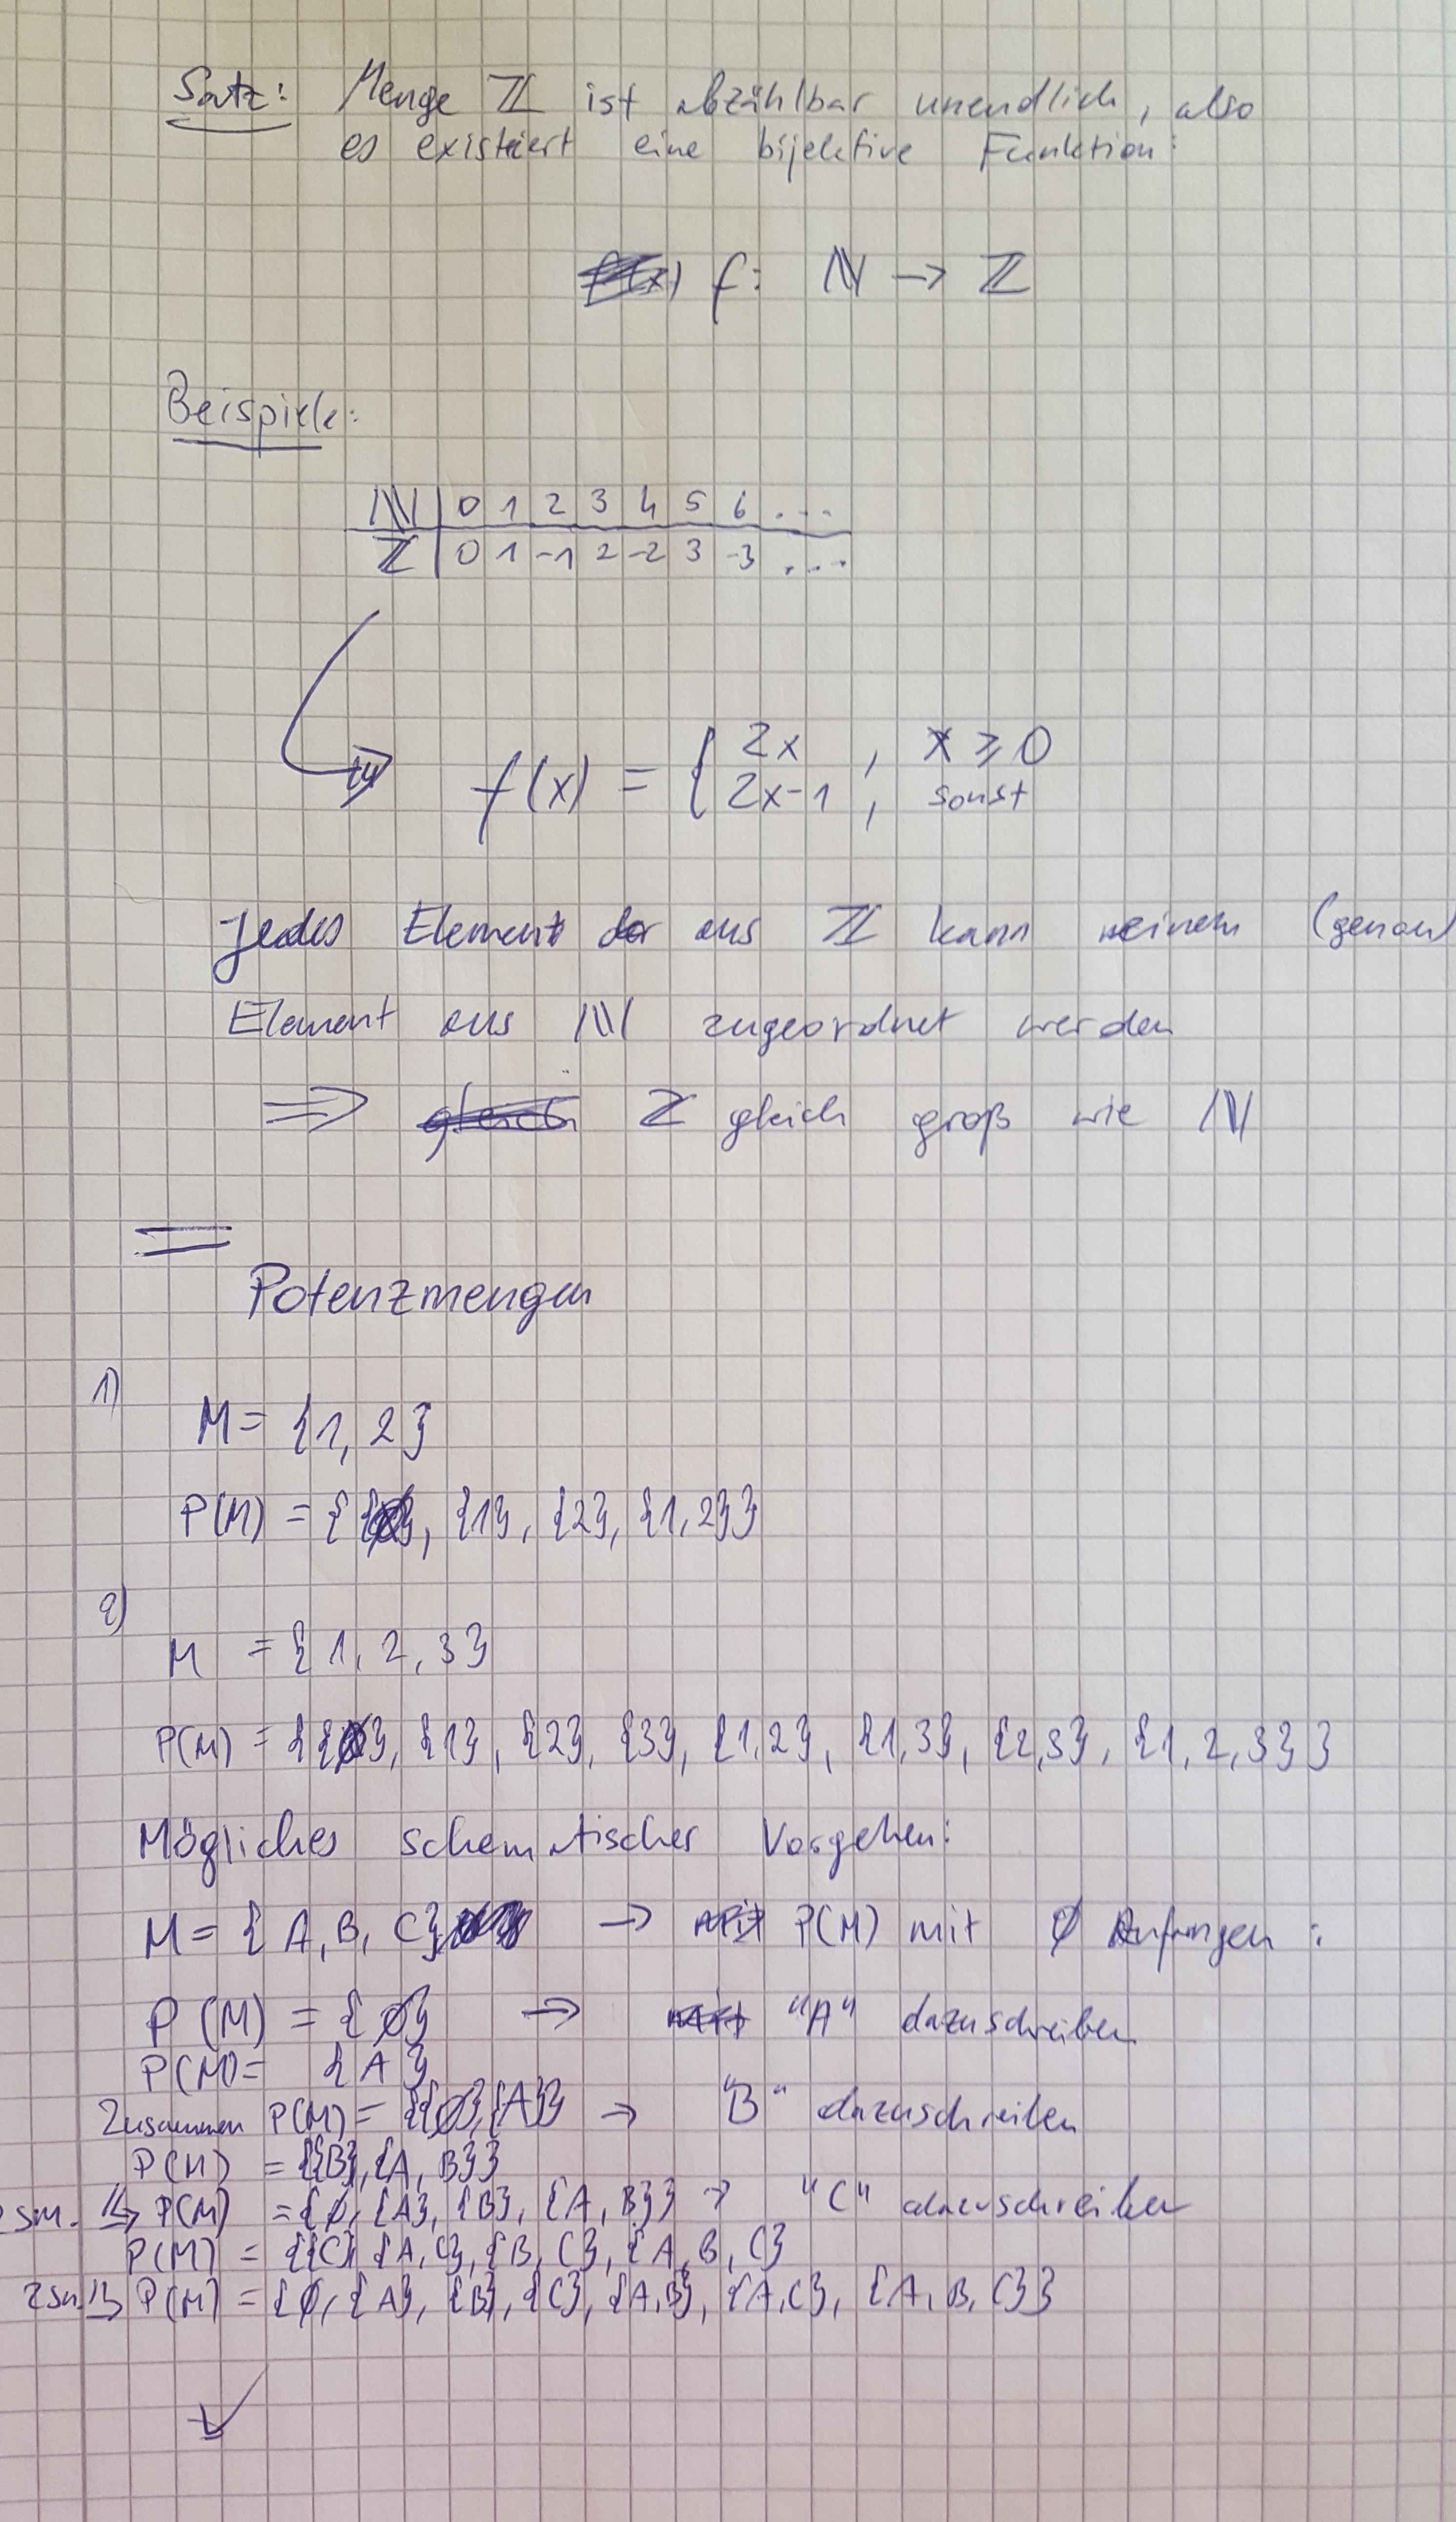 Satz: Menge ℤ ist abzählbar unendlich, also
es existiert eine bijektive Funktion:
f: ℕ → ℤ
Beispiele:
ℕ | 0 1 2 3 4 5 6 ...
ℤ | 0 1 -1 2 -2 3 -3 ...
f(x) = { 2x , x ≥ 0
2x-1 , sonst
Jedes Element aus ℤ kann einem (genau)
Element aus ℕ zugeordnet werden
⇒ ℤ gleich groß wie ℕ
Potenzmengen
1)
M = {1, 2}
P(M) = {{∅}, {1}, {2}, {1, 2}}
2)
M = {1, 2, 3}
P(M) = {{∅}, {1}, {2}, {3}, {1,2}, {1,3}, {2,3}, {1, 2, 3}}
Mögliches schematischer Vorgehen:
M = {A, B, C} → P(M) mit ∅ Anfangen :
P(M) = {∅} → "A" dazuschreiben
P(M) = {A}
Zusammen P(M) = {{∅},{A}} → "B" dazuschreiben
P(M) = {{B},{A, B}}
zsm. ↳ P(M) = {∅, {A}, {B}, {A, B}} → "C" dazuschreiben
P(M) = {{C} {A, C}, {B, C}, {A, B, C}
zsm. ↳ P(M) = {∅, {A}, {B}, {C}, {A,B}, {A,C}, {A, B, C}}